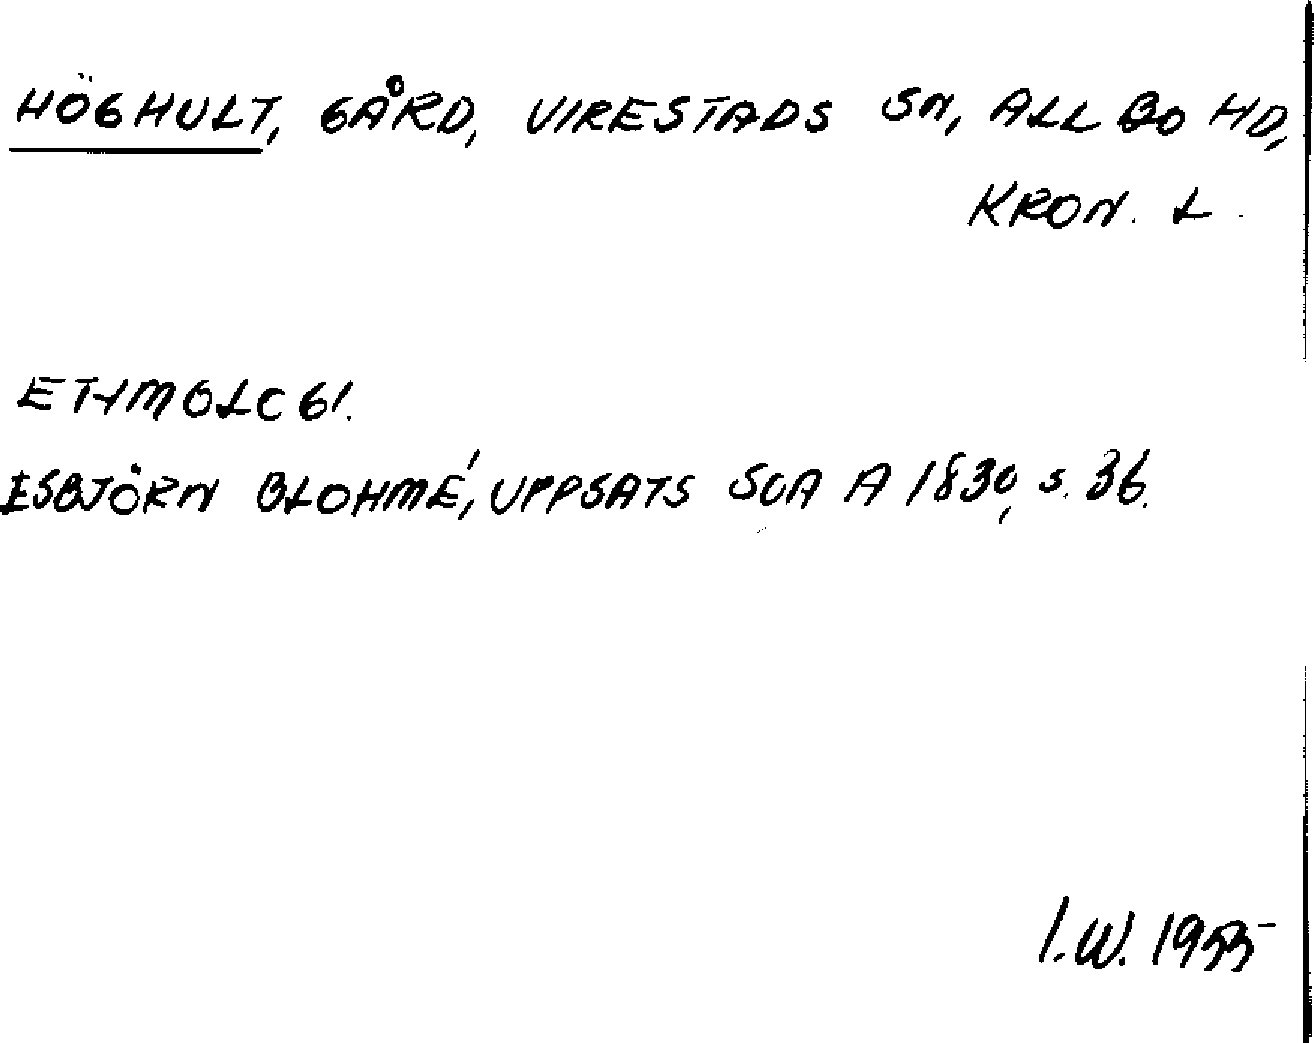 HÖGHULT, GÅRD, VIRESTADS SN, ALLBO HD,
KRON. L.
ETYMOLOGI.
ESBJÖRN BLOHMÉ, UPPSATS SOA A 1830, S. 36.
I.W. 1955